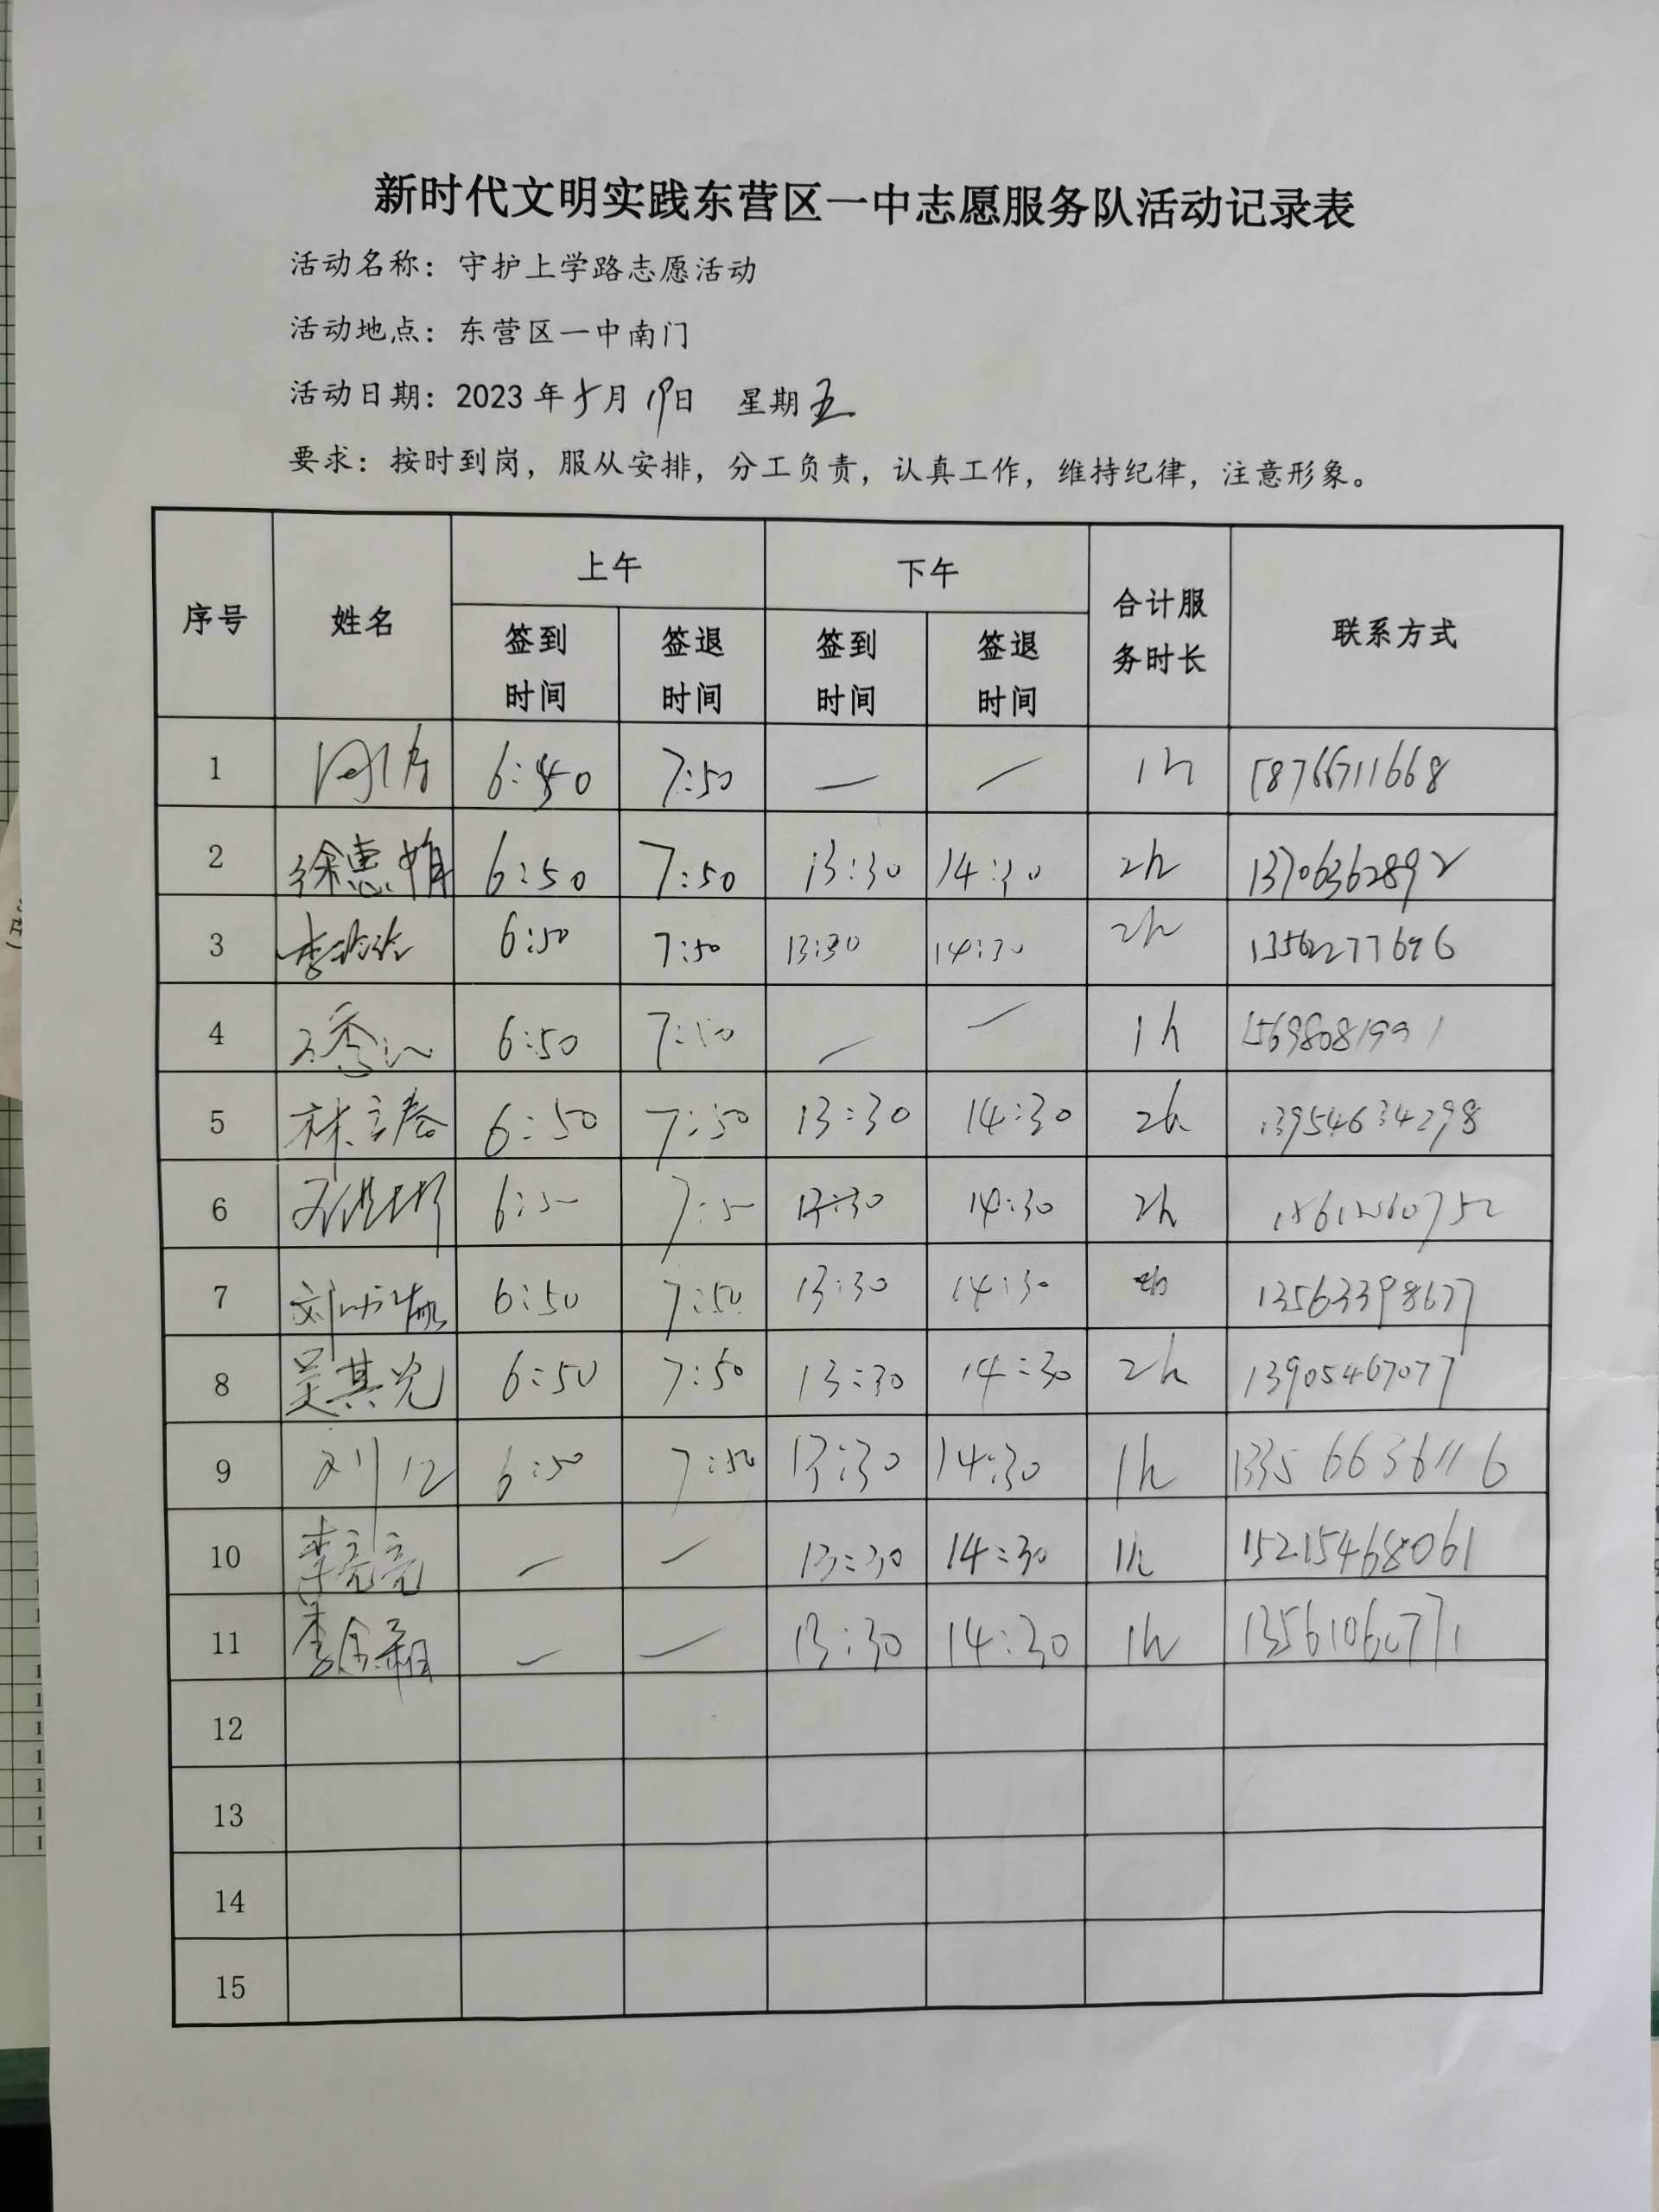 新时代文明实践东营区一中志愿服务队活动记录表
活动名称：守护上学路志愿活动
活动地点：东营区一中南门
活动日期：2023年5月19日 星期五
要求：按时到岗，服从安排，分工负责，认真工作，维持纪律，注意形象。
序号 姓名 上午 下午 合计服务时长 联系方式
签到时间 签退时间 签到时间 签退时间
1 6:50 7:50 — — 1h 18766711668
2 徐惠娟 6:50 7:50 13:30 14:30 2h 13706362892
3 李玲玲 6:50 7:50 13:30 14:30 2h
4 6:50 7:50 — — 1h
5 林立春 6:50 7:50 13:30 14:30 2h 13954634298
6 6:50 7:50 13:30 14:30 2h
7 6:50 7:50 13:30 14:30 13563398677
8 吴其光 6:50 7:50 13:30 14:30 2h 13905467077
9 6:50 7:50 13:30 14:30 1h 13356636116
10 李亮亮 — — 13:30 14:30 1h 15215468061
11 — — 13:30 14:30 1h 13561060771
12
13
14
15